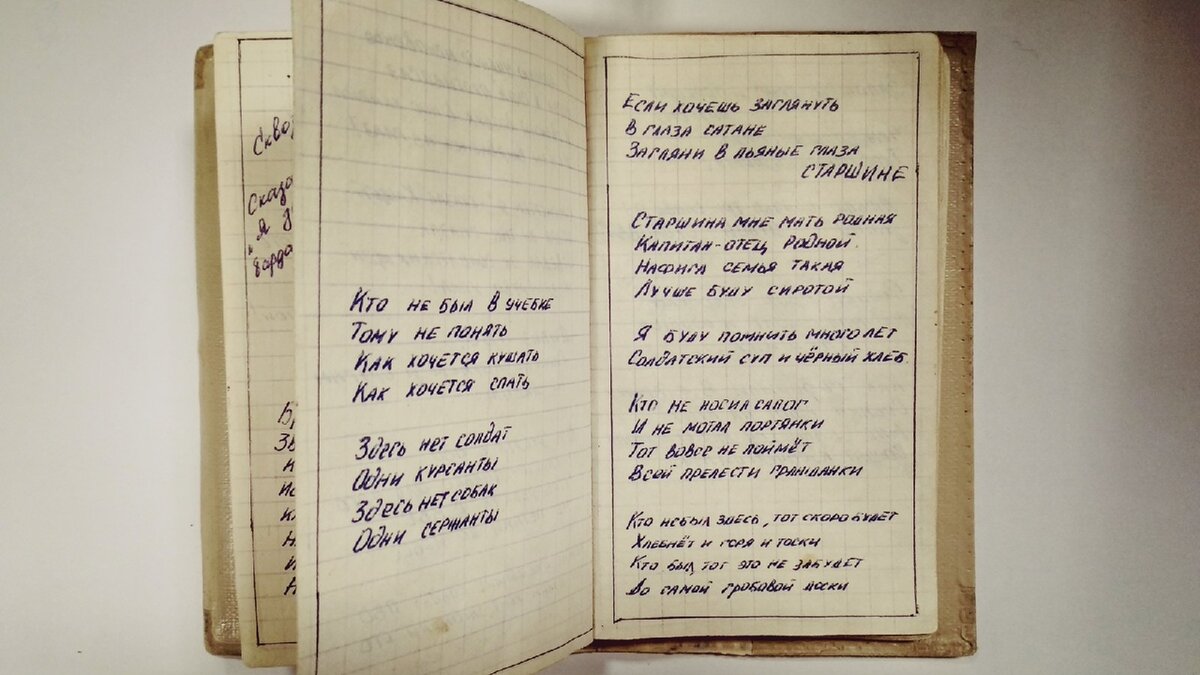 Сказа
Я
Кто не был в учебке
Тому не понять
Как хочется кушать
Как хочется спать
Здесь нет солдат
Одни курсанты
Здесь нет собак
Одни сержанты
Если хочешь заглянуть
В глаза сатане
Загляни в пьяные глаза
старшине
Старшина мне мать родная
Капитан-отец родной.
Нафига семья такая
Лучше буду сиротой
Я буду помнить много лет
Солдатский суп и чёрный хлеб.
Кто не носил сапог
И не мотал портянки
Тот вовсе не поймёт
Всей прелести гражданки
Кто не был здесь, тот скоро будет
Хлебнёт и горя и тоски
Кто был, тот это не забудет
До самой гробовой доски